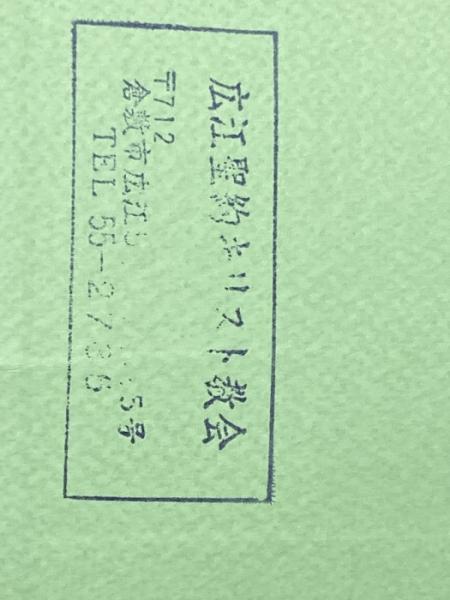 広江聖約キリスト教会
〒712
倉敷市広江
5号
TEL 55-2